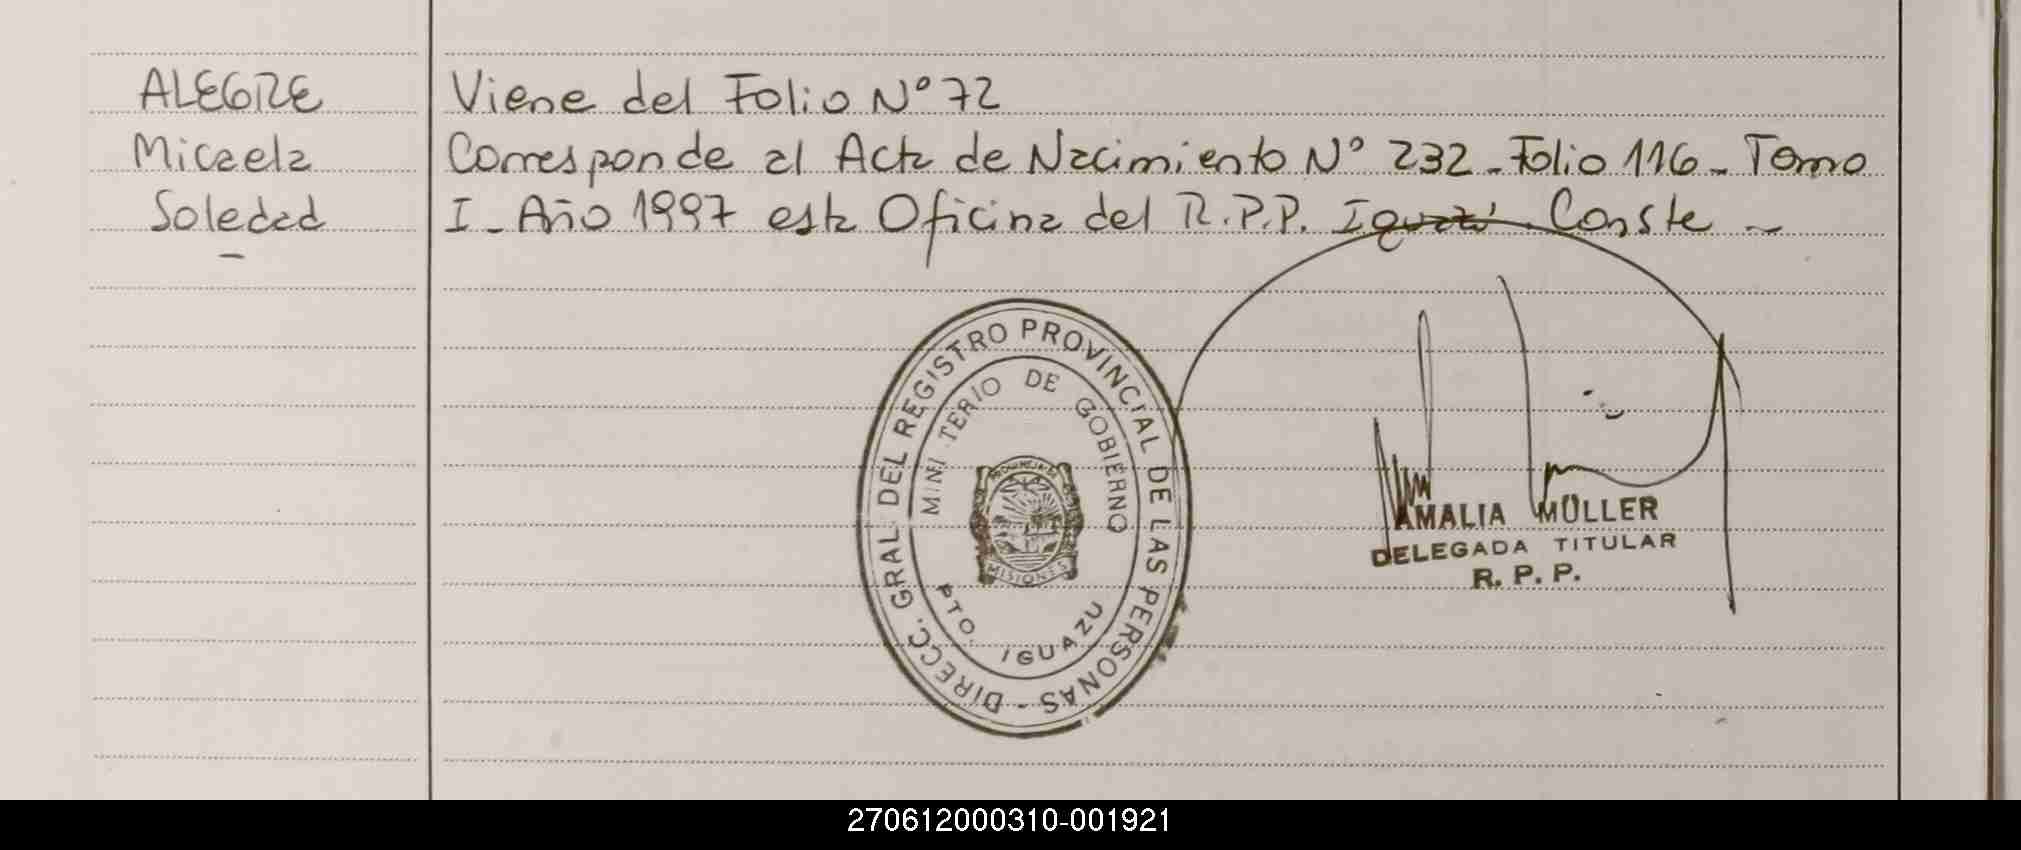 ALEGRE
Micaela
Soledad
-
Viene del Folio Nº 72
Corresponde al Acta de Nacimiento Nº 232 - Folio 116 - Tomo
I - Año 1997 esta Oficina del R.P.P. Iguazú. Conste -
DIRECC. GRAL DEL REGISTRO PROVINCIAL DE LAS PERSONAS -
MINI TERIO DE GOBIERNO
PROVINCIA DE
MISIONES
PTO. IGUAZU
AMALIA MÜLLER
DELEGADA TITULAR
R. P. P.
270612000310-001921